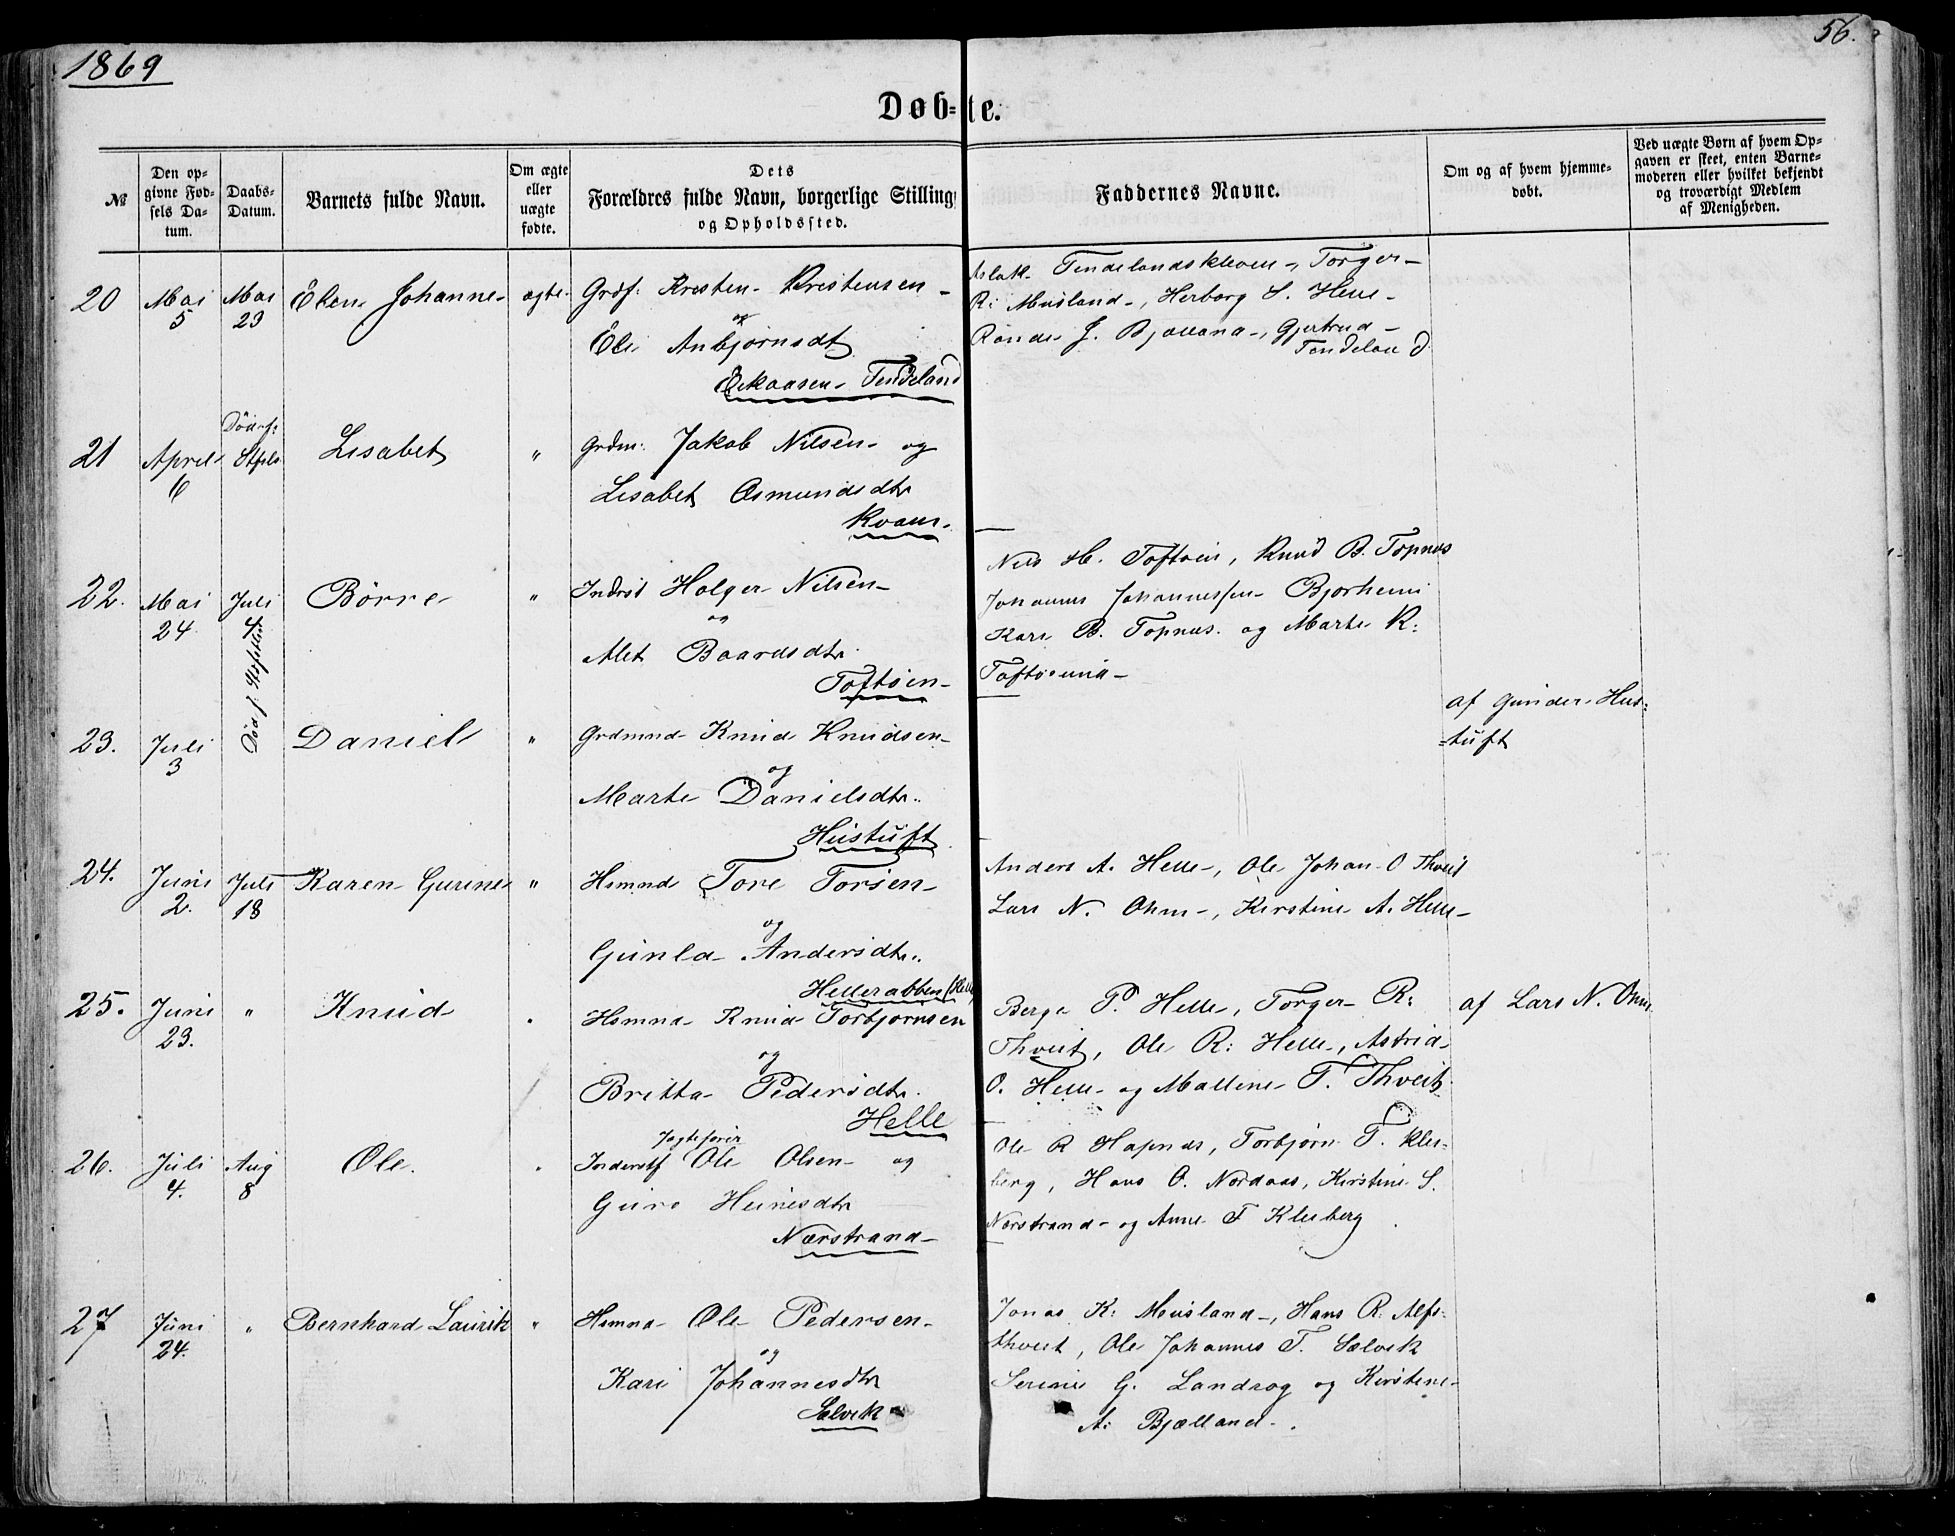 1869
56.
Døb=te.
№
Den op-
givne Fød-
sels Da-
tum.
Daabs-
Datum.
Barnets fulde Navn.
Om ægte
eller
uægte
fødte.
Dets
Forældres fulde Navn, borgerlige Stilling
og Opholdssted.
Faddernes Navne.
Om og af hvem hjemme-
døbt.
Ved uægte Børn af hvem Op-
gaven er skeet, enten Barne-
moderen eller hvilket bekjendt
og troværdigt Medlem
af Menigheden.
20 Mai 5 Mai 23 Elen Johanne ægte
Kresten Kristensen
og
Eli Anbjørnsdt
Tendeland
Aslak Tendelandskleven, Torger
R: Musland, Herborg S. Helle
J. Bjelland, Gjertrud
Tendeland
21 April 6 Død f. Lisabet "
Grdm: Jakob Nilsen og
Lisabet Osmundsdtr
Kvam
22. Mai 24 Juli 4 Børre "
Holger Nilsen
og
Alet Baardsdtr.
Toftøen
Nils H. Toftøen, Knud B. Topnes
Johannes Johannessen Bjorheim
Kari B. Topnes og Marte K:
23. Juli 3 Død f. Daniel "
Grdmnd Knud Knudsen
og
Marte Danielsdtr.
Hustuft
af Gunder Hus-
=tuft
24. Juni 2. Juli 18 Karen Gurine "
Hsmnd Tore Torsen
og
Gunla Andersdtr.
Hellerabben (Helle
Anders A. Helle, Ole Johan O Thveit
Lars N. Ohm, Kirstine A. Helle
25. Juni 23. " Knud
Hsmnd Knud Torbjørnsen
og
Britta Pedersdtr.
Helle
Berge P. Helle, Torger R:
Thveit, Ole R: Helle, Astrid
O. Helle og Mallene T. Thveit
af Lars N. Ohm
26. Juli 4. Aug 8 Ole.
Ole Olsen og
Guro Heinesdtr
Nærstrand
Ole R Hapnes, Torbjørn T. Kles-
berg, Hans O. Nordaas, Kirstine S.
Nærstrand og Anne T Klesberg
27 Juni 24. " Bernhard Laurik "
Hsmnd Ole Pedersen
og
Kari Johannesdtr
Salvik
Jonas K: Musland, Hans R: Alfs-
thveit, Ole Johannes T. Salvik
Serine G. Landrog og Kirstine
A: Bjælland.